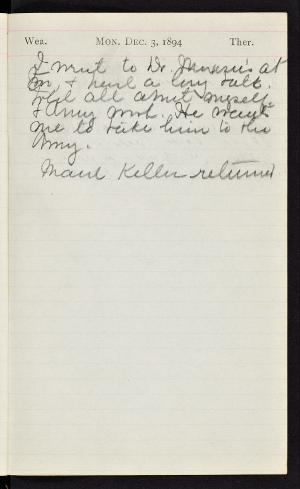 Wea. MON. DEC. 3, 1894 Ther.
I went to Dr. at
& had a long talk.
told all about myself
& my work. He wants
me to take him to the
Army.
Maud Keller returned